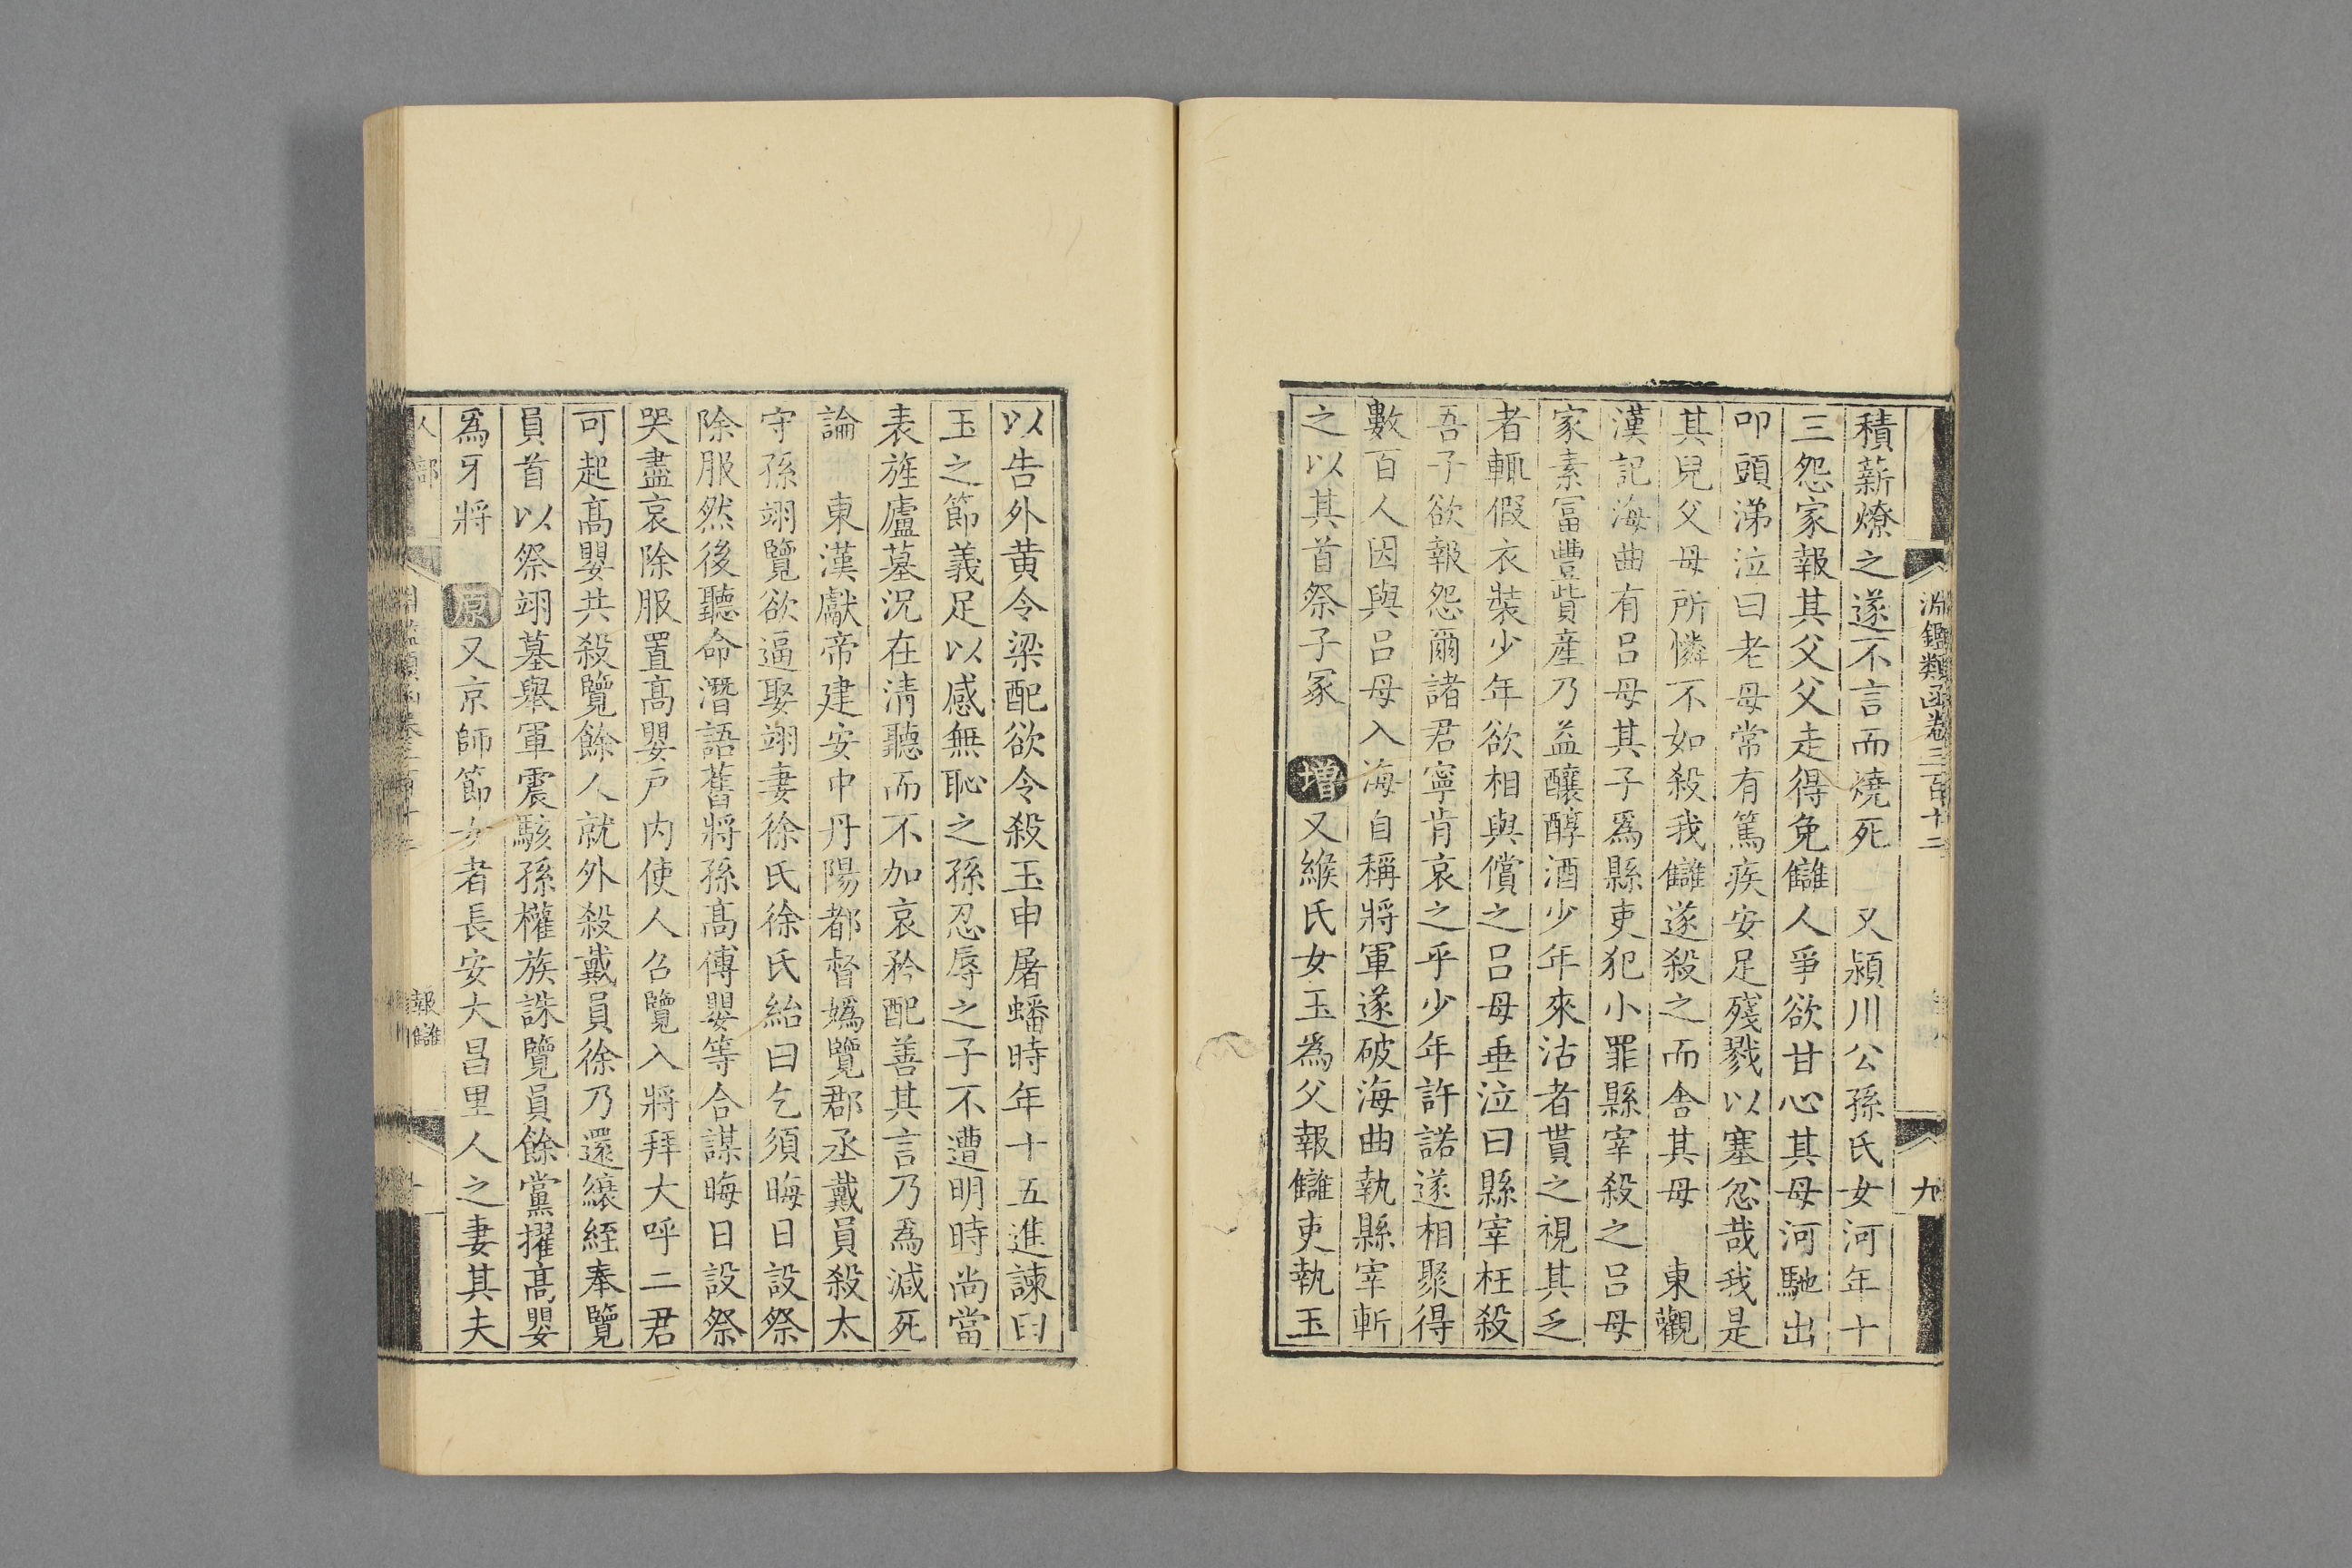 淵鑑類函卷三百十二
九
積薪燎之遂不言而燒死　又潁川公孫氏女河年十
三怨家報其父父走得免讎人爭欲甘心其母河馳出
叩頭涕泣曰老母常有篤疾安足殘戮以塞忿哉我是
其兒父母所憐不如殺我讎遂殺之而舍其母　東觀
漢記海曲有呂母其子爲縣吏犯小罪縣宰殺之呂母
家素富豐貲產乃益釀醇酒少年來沽者貰之視其乏
者輒假衣裝少年欲相與償之呂母垂泣曰縣宰枉殺
吾子欲報怨爾諸君寧肯哀之乎少年許諾遂相聚得
數百人因與呂母入海自稱將軍遂破海曲執縣宰斬
之以其首祭子冢　增又緱氏女玉爲父報讎吏執玉
以告外黃令梁配欲令殺玉申屠蟠時年十五進諫曰
玉之節義足以感無恥之孫忍辱之子不遭明時尚當
表旌廬墓況在清聽而不加哀矜配善其言乃爲減死
論　東漢獻帝建安中丹陽都督嬀覽郡丞戴員殺太
守孫翊覽欲逼娶翊妻徐氏徐氏紿曰乞須晦日設祭
除服然後聽命潛語舊將孫高傅嬰等合謀晦日設祭
哭盡哀除服置高嬰戶內使人召覽入將拜大呼二君
可起高嬰共殺覽餘人就外殺戴員徐乃還縗絰奉覽
員首以祭翊墓舉軍震駭孫權族誅覽員餘黨擢高嬰
爲牙將　原又京師節女者長安大昌里人之妻其夫
人部
報讎